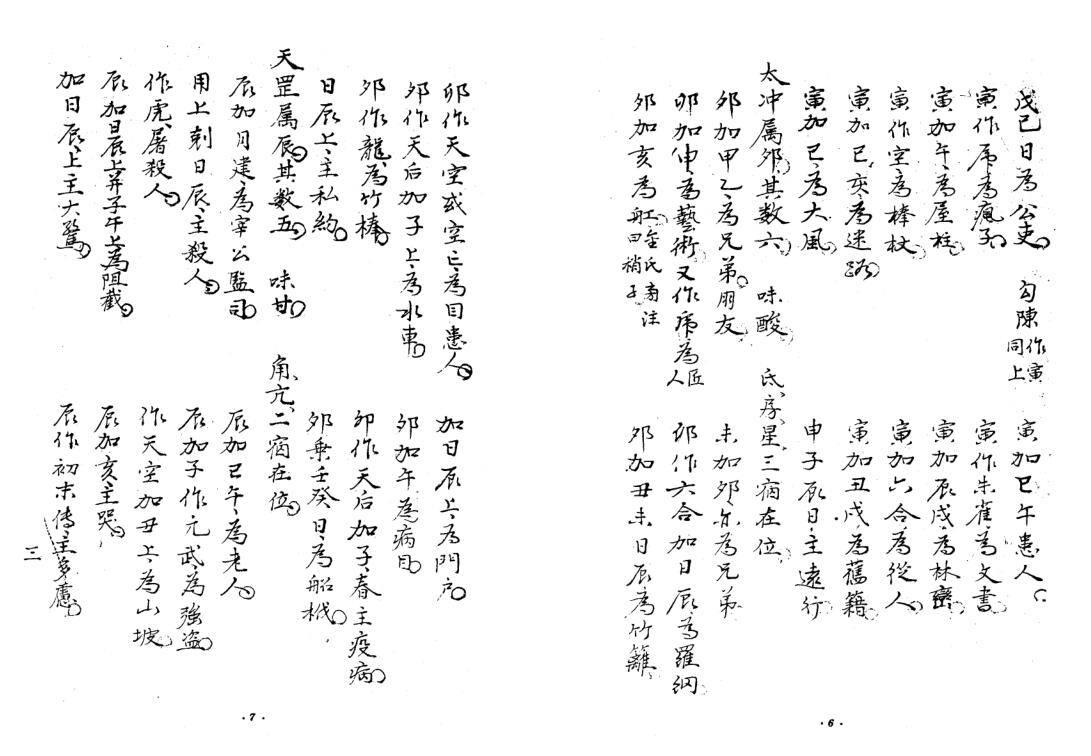 戊己日為公吏。 勾陳作寅同上 寅加巳午患人。
寅作虎為瘋子。 寅作朱雀為文書。
寅加午為屋柱。 寅加辰戌為林巒。
寅作空為棒杖。 寅加六合為從人。
寅加巳亥為迷路。 寅加丑戌為舊籍。
寅加巳為大風。 申子辰日主遠行。
太冲属夘其數六。 味酸。 氐、房、星、三宿在位。
夘加甲乙為兄弟朋友。 未加夘亦為兄弟
夘加申為藝術又作虎為匠人 夘作六合加日辰為羅網。
夘加亥為舡曰稍子 夘加丑未日辰為竹籬。
·6·
夘作天空或空亡為目患人。 加日辰上為門户。
夘作天后加子上為水車。 夘加午為病目。
夘作龍為竹棒。 夘作天后加子春主疫病。
日辰上主私約。 夘乘壬癸日為船栰。
天罡属辰其數五。 味甘。 角、亢、二宿在位。
辰加月建為宰公監司。 辰加巳午為老人。
用上剋日辰主殺人。 辰加子作元武為強盗。
作虎屠殺人。 作天空加丑上為山坡。
辰加日辰上并子午上為阻截。 辰加亥主哭。
加日辰上主大驚。 辰作初末傳主多慮。
三
·7·